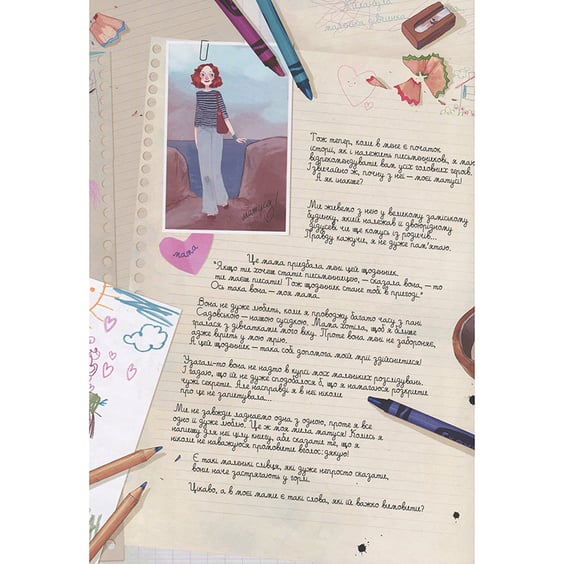 маленька дівчинка
матуся
мама
Тож тепер, коли в мене є початок
історії, як і належить письменникові, я маю
відрекомендувати вам усіх головних героїв.
І звичайно ж, почну з неї – моєї матусі!
А як інакше?
Ми живемо з нею у великому заміському
будинку, який належав її двоюрідному
дідусеві чи ще комусь із родичів...
Правду кажучи, я не дуже пам'ятаю.
Це мама придбала мені цей щоденник.
"Якщо ти хочеш стати письменницею, – сказала вона, – то
ти маєш писати! Тож щоденник стане тобі в пригоді."
Ось така вона – моя мама.
Вона не дуже любить, коли я проводжу багато часу з пані
Садовською – нашою сусідкою. Мама хотіла, щоб я більше
гралася з дівчатками мого віку. Проте вона мені не забороняє,
адже вірить у мою мрію.
А цей щоденник – така собі допомога моїй мрії здійснитися!
Узагалі-то вона не надто в курсі моїх маленьких розслідувань.
І гадаю, що їй не дуже сподобалося б, що я намагаюся розкрити
чужі секрети. Але насправді я в неї ніколи
про це не запитувала...
Ми не завжди ладнаємо одна з одною, проте я все
одно її дуже люблю! Це ж моя мила матуся! Колись я
напишу для неї цілу книгу, аби сказати те, що я
ніколи не наважуюся промовити вголос: дякую!
Є такі маленькі слівця, які дуже непросто сказати,
вони наче застрягають у горлі.
Цікаво, а в моєї мами є такі слова, які їй важко вимовити?